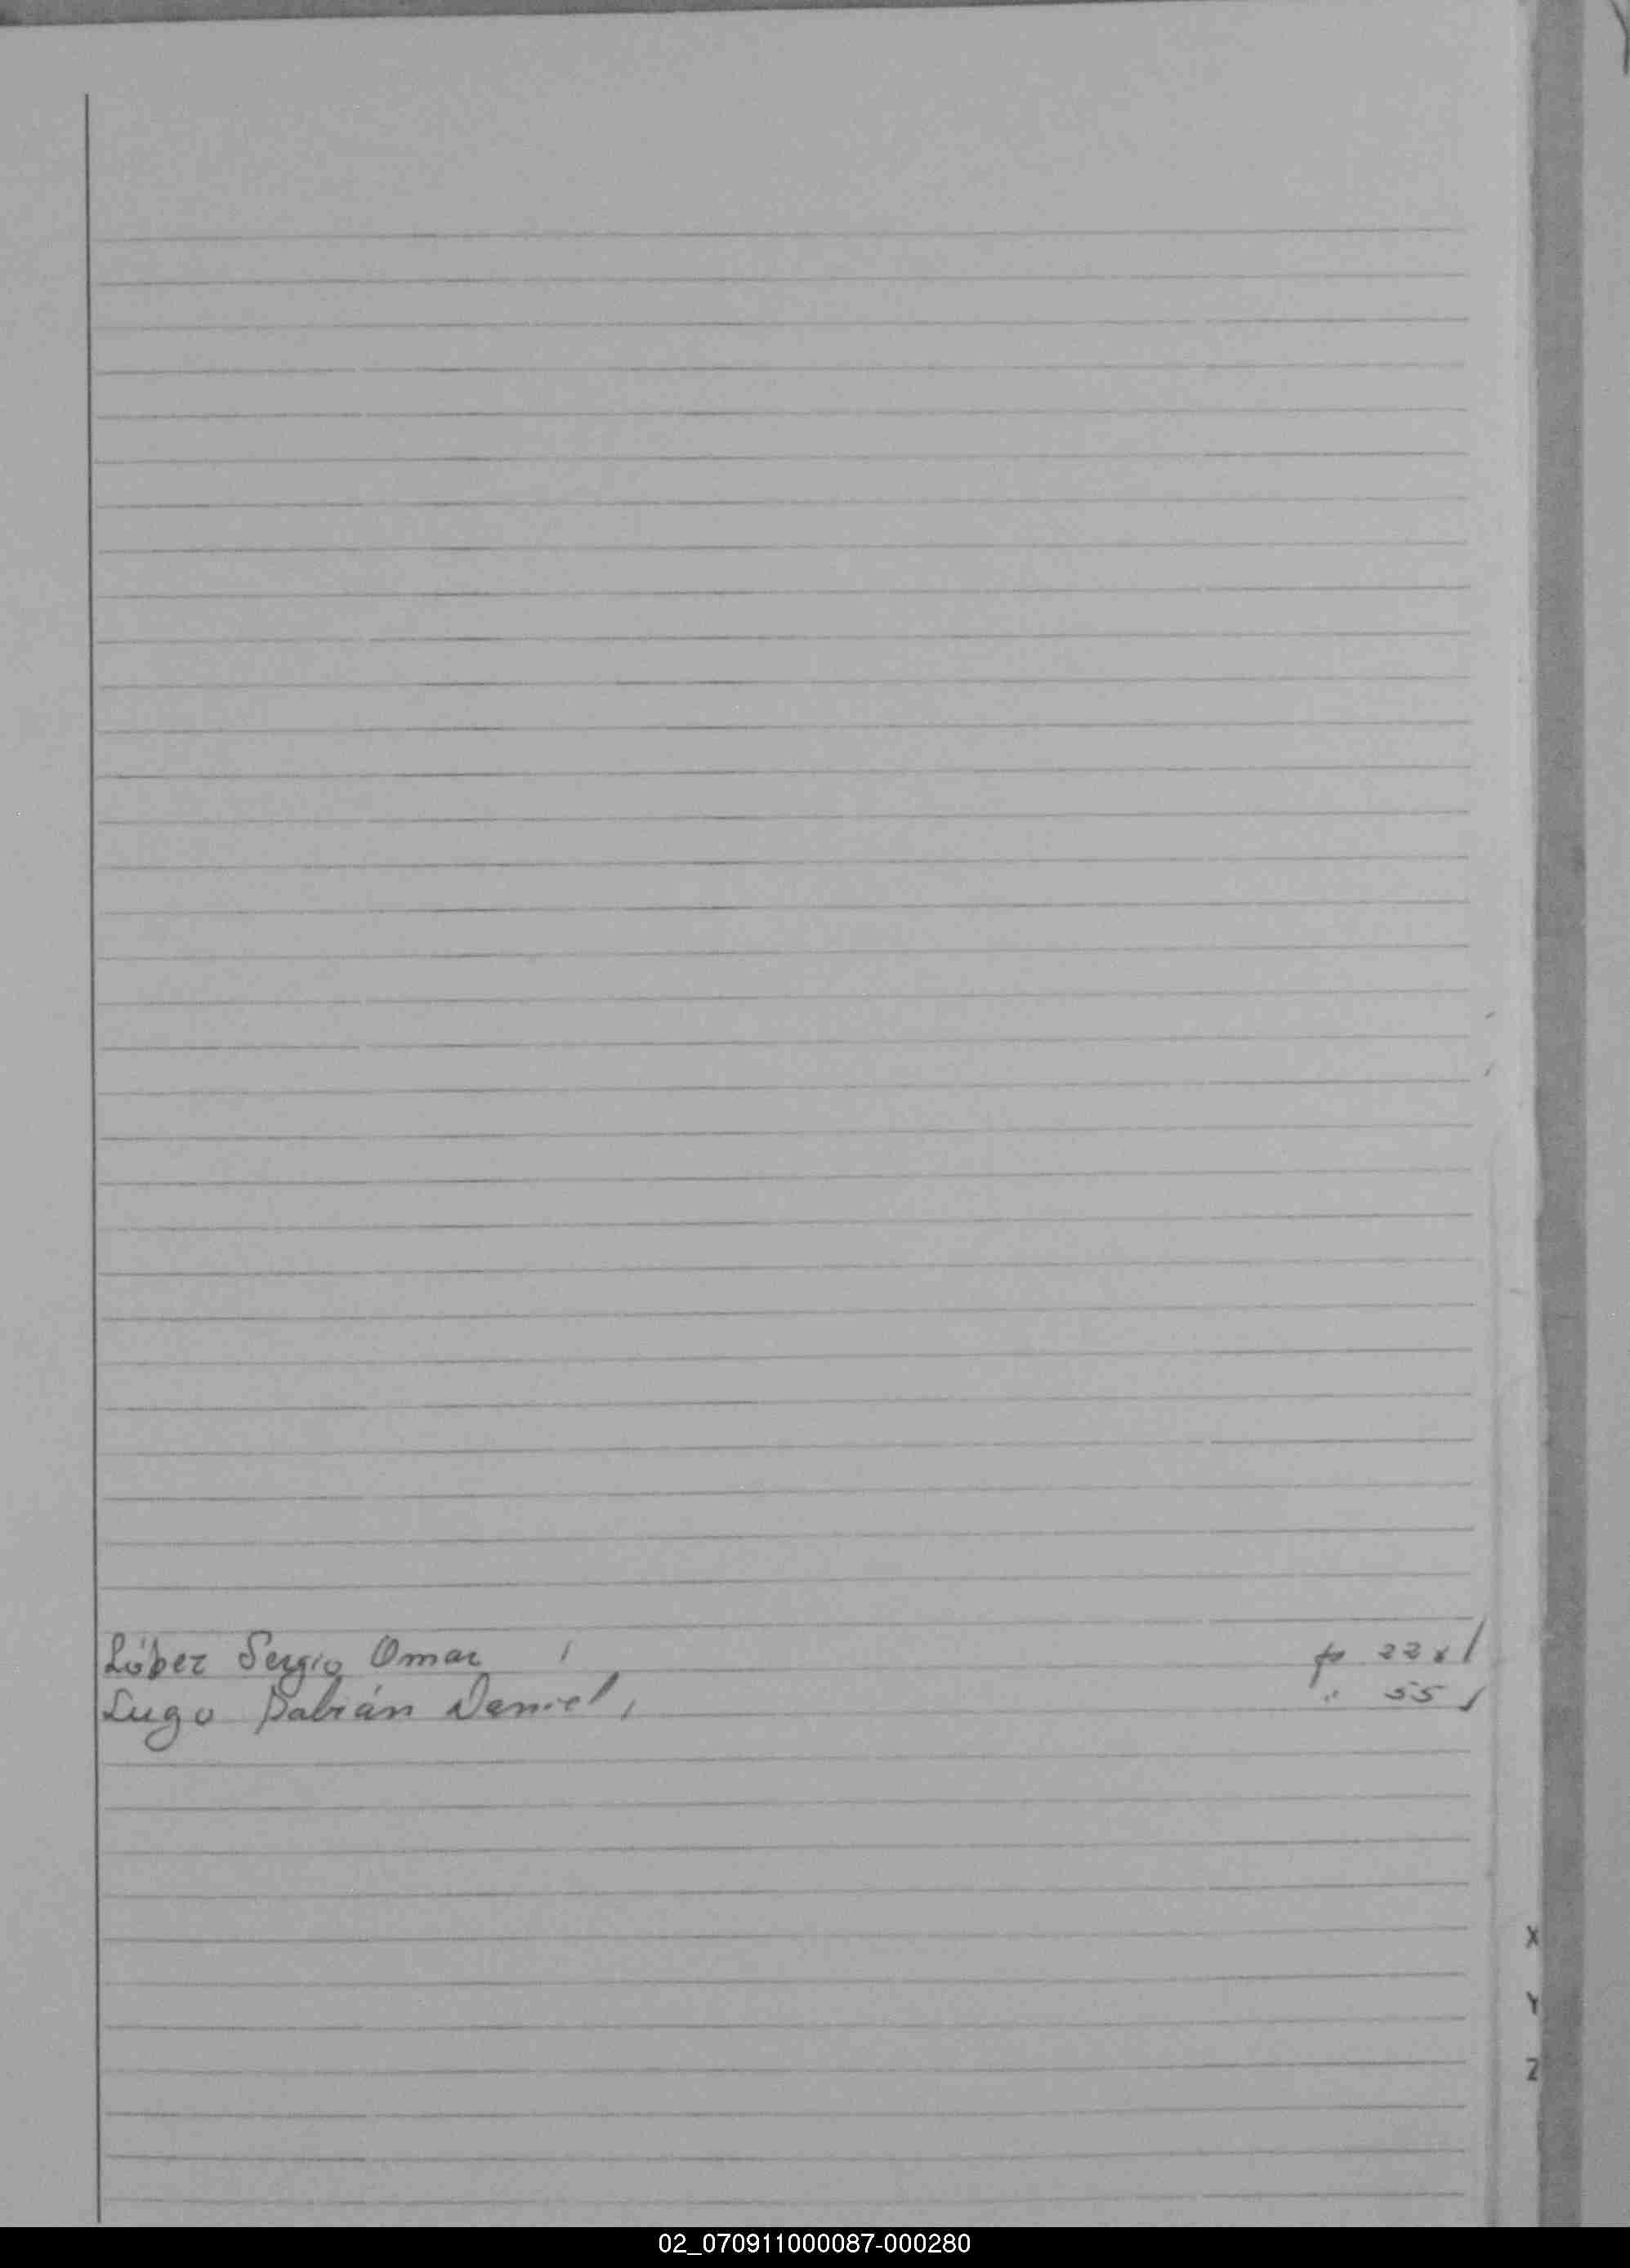 López Sergio Omar fo 22
Lugo Fabián Daniel " 55
X
Y
Z
02_070911000087-000280